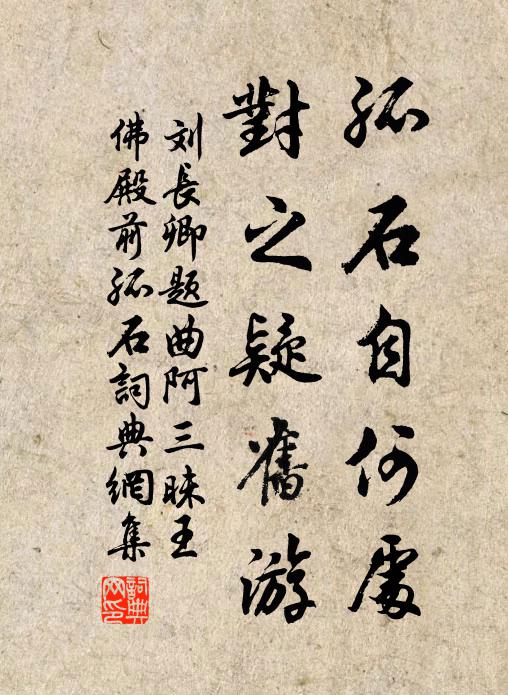 孤石自何處
對之疑舊游
刘長卿题曲阿三昧王
佛殿前孤石詞典網集
詞典網印